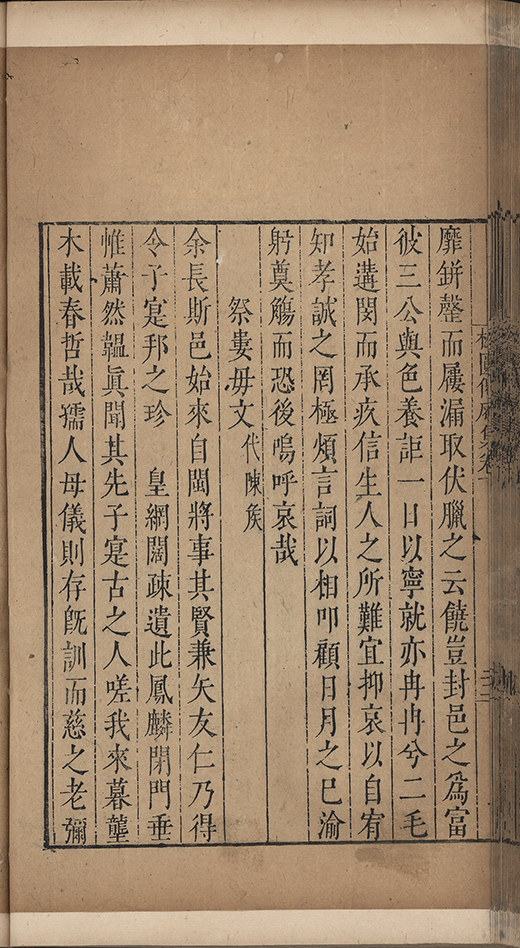 靡缾罄而屢漏取伏臘之云饒豈封邑之爲富
彼三公與色養詎一日以寧就亦冉冉兮二毛
始遘閔而承疚信生人之所難宜抑哀以自宥
知孝誠之罔極煩言詞以相叩顧日月之已渝
躬奠觴而恐後嗚呼哀哉
祭婁毋文代陳矦
余長斯邑始來自閩將事其賢兼矢友仁乃得
令子寔邦之珍 皇網闊疎遺此鳳麟閉門垂
帷蕭然韞眞聞其先子寔古之人嗟我來暮壟
木載春哲哉孺人母儀則存旣訓而慈之老彌